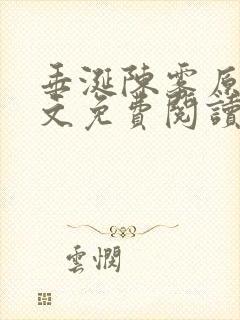 垂涎陳雯原
文免費閱讀
雲惘